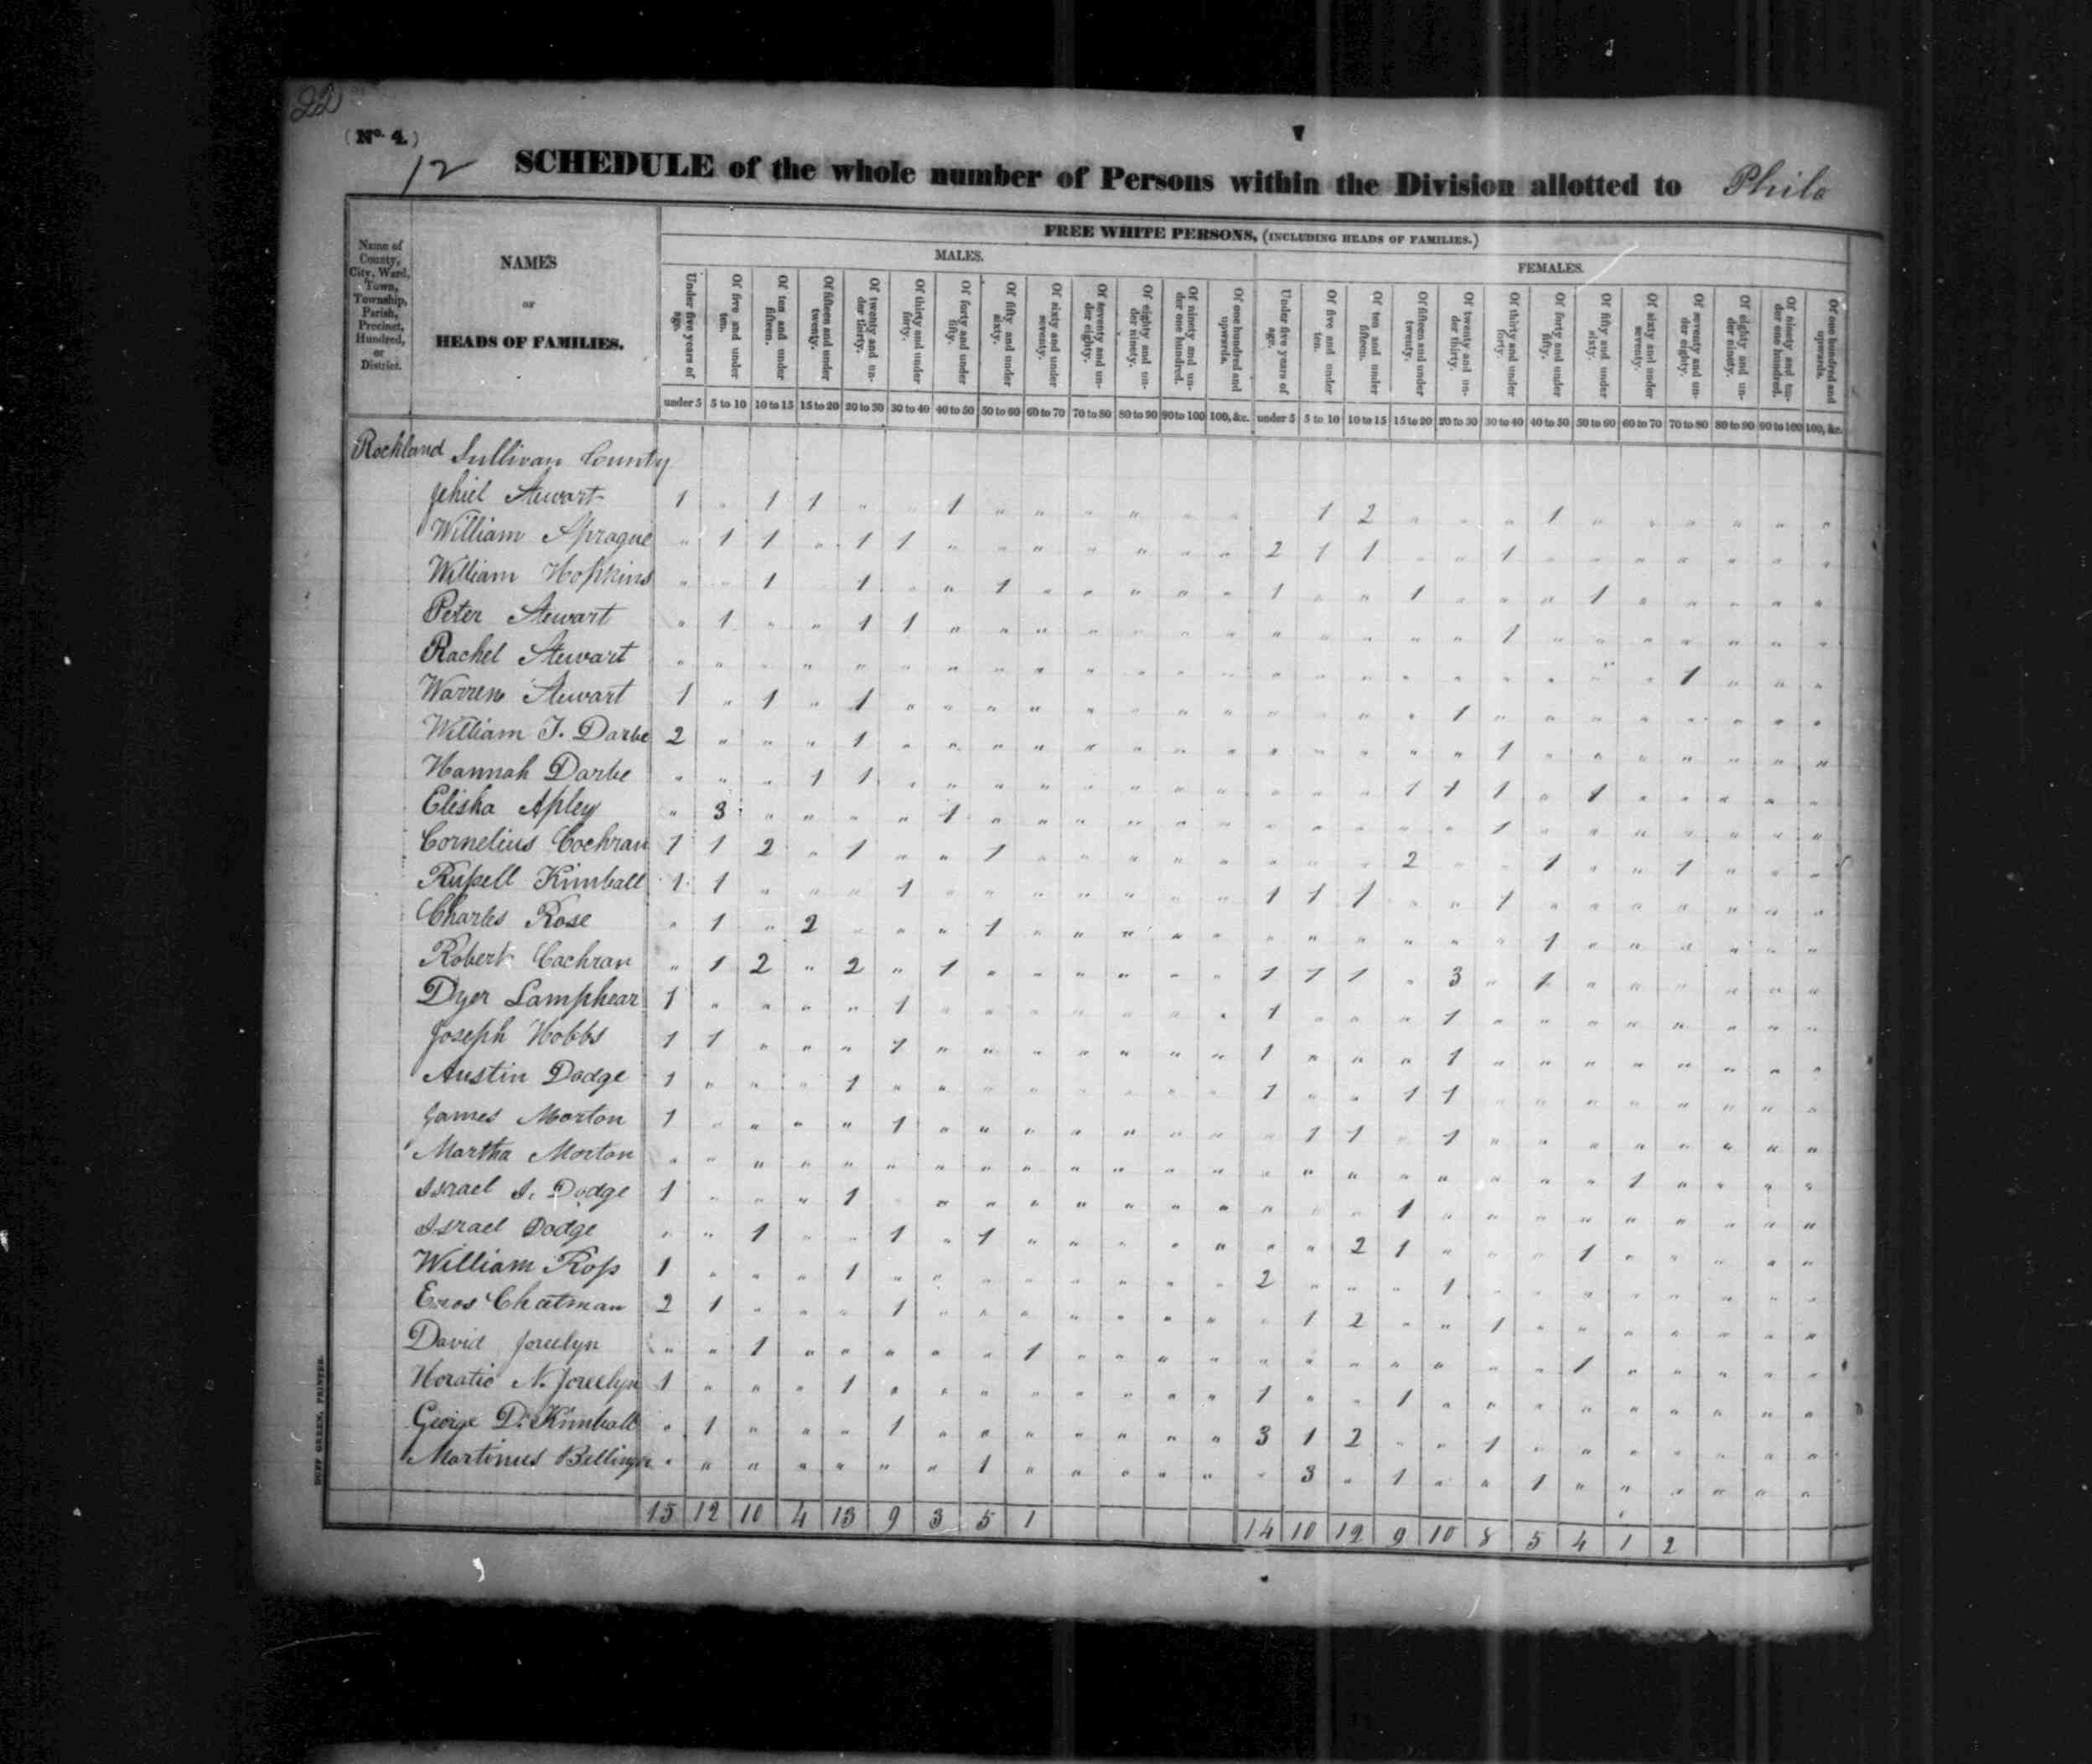 22
(No. 4.)
12
SCHEDULE of the whole number of Persons within the Division allotted to Philo
Name of County, City, Ward, Town, Township, Parish, Precinct, Hundred, or District.
NAMES
OF
HEADS OF FAMILIES.
FREE WHITE PERSONS, (INCLUDING HEADS OF FAMILIES.)
MALES.
FEMALES.
Under five years of age. Of five and under ten. Of ten and under fifteen. Of fifteen and under twenty. Of twenty and under thirty. Of thirty and under forty. Of forty and under fifty. Of fifty and under sixty. Of sixty and under seventy. Of seventy and under eighty. Of eighty and under ninety. Of ninety and under one hundred. Of one hundred and upwards.
Under five years of age. Of five and under ten. Of ten and under fifteen. Of fifteen and under twenty. Of twenty and under thirty. Of thirty and under forty. Of forty and under fifty. Of fifty and under sixty. Of sixty and under seventy. Of seventy and under eighty. Of eighty and under ninety. Of ninety and under one hundred. Of one hundred and upwards.
under 5 5 to 10 10 to 15 15 to 20 20 to 30 30 to 40 40 to 50 50 to 60 60 to 70 70 to 80 80 to 90 90 to 100 100, &c. under 5 5 to 10 10 to 15 15 to 20 20 to 30 30 to 40 40 to 50 50 to 60 60 to 70 70 to 80 80 to 90 90 to 100 100, &c.
Rockland Sullivan County
Jehiel Stewart 1 1 1 1 1 2 1
William Sprague 1 1 1 1 2 1 1 1
William Hopkins 1 1 1 1 1 1
Peter Stewart 1 1 1 1
Rachel Stewart 1
Warren Stewart 1 1 1 1
William T. Darbe 2 1 1
Hannah Darbe 1 1 1 1 1 1
Elisha Apley 3 1 1
Cornelius Cochran 1 1 2 1 1 2 1 1
Russell Kimball 1 1 1 1 1 1 1
Charles Rose 1 2 1 1
Robert Cochran 1 2 2 1 1 1 1 3 1
Dyer Lamphear 1 1 1 1
Joseph Hobbs 1 1 1 1 1
Austin Dodge 1 1 1 1 1
James Morton 1 1 1 1 1
Martha Morton 1
Israel I. Dodge 1 1 1
Israel Dodge 1 1 1 2 1 1
William Ross 1 1 2 1
Enos Chatman 2 1 1 1 2 1
David Jocelyn 1 1 1
Horatio N. Jocelyn 1 1 1 1
George D. Kimball 1 1 3 1 2 1
Martinus Bellinger 1 3 1 1
15 12 10 4 13 9 3 5 1 14 10 12 9 10 8 5 4 1 2
DUFF GREEN, PRINTER.